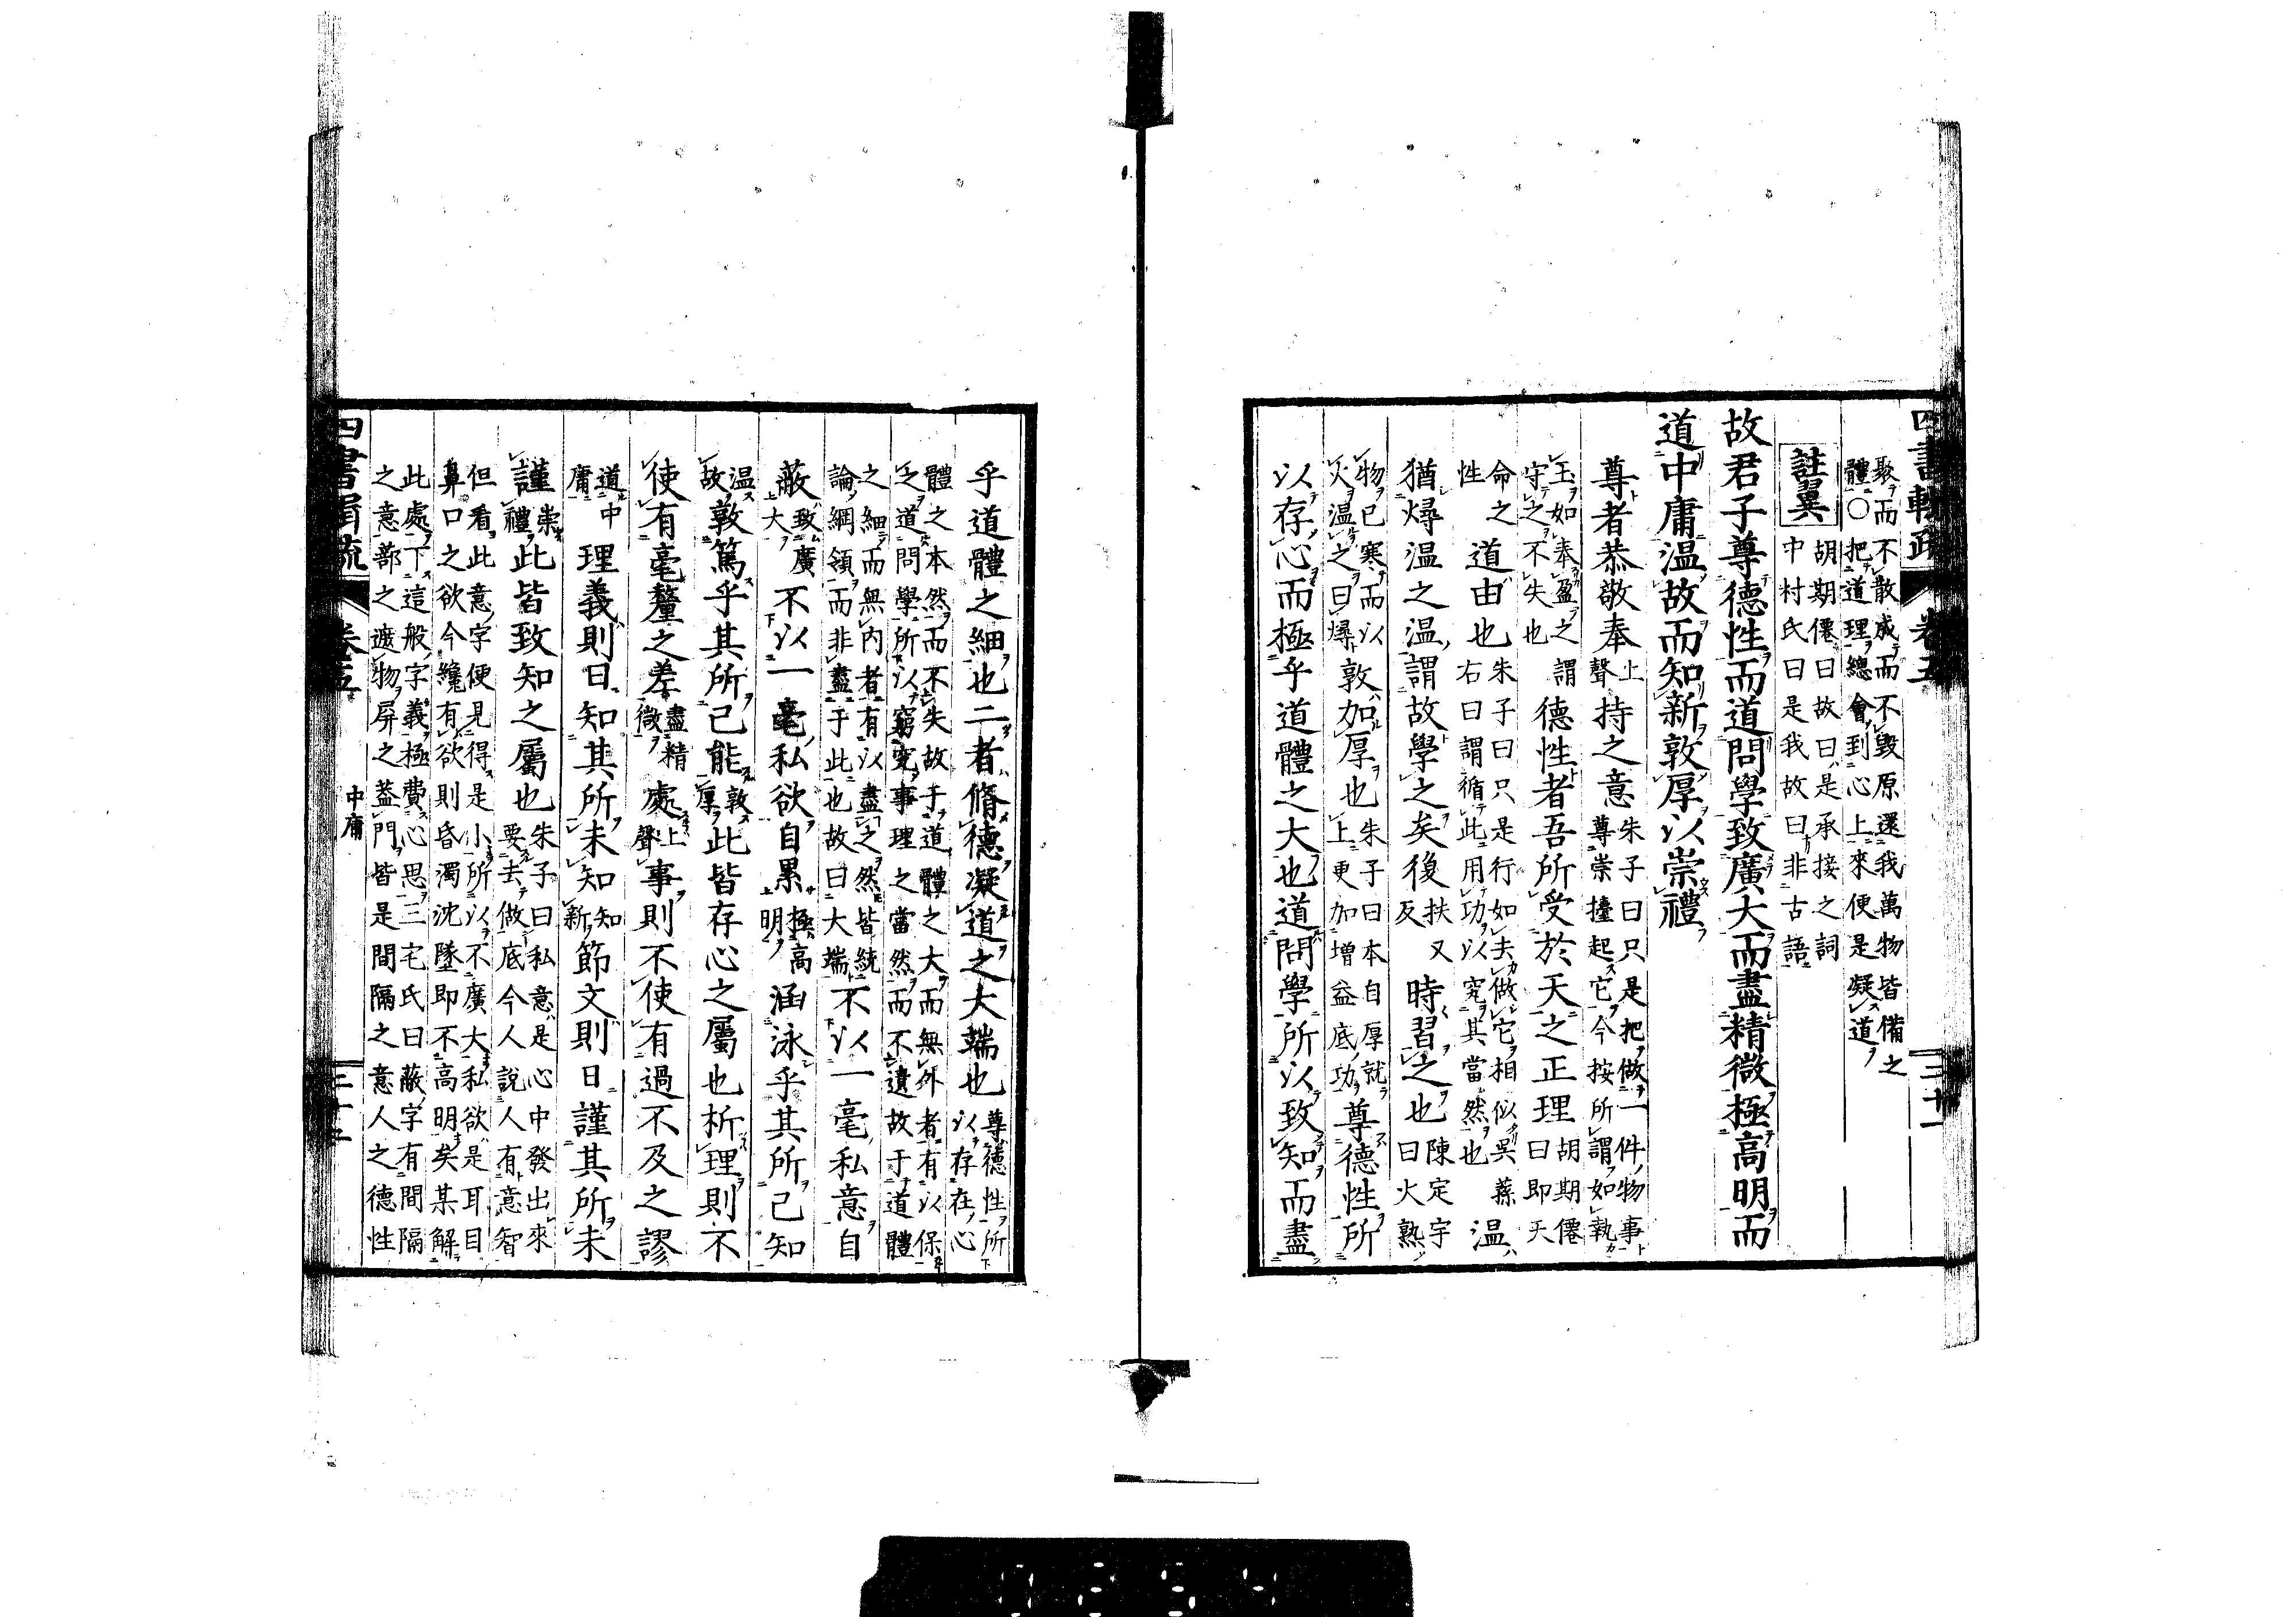 四書輯疏 卷五
聚而不散成而不毀原還我萬物皆備之
體○把道理總會到心上來便是凝道
註翼 胡期僊曰故曰是承接之詞
中村氏曰是我故曰非古語
故君子尊德性而道問學致廣大而盡精微極高明而
道中庸温故而知新敦厚以崇禮
尊者恭敬奉上聲持之意朱子曰只是把做一件物事
尊崇擡起它今按所謂如執
玉如奉盈之謂
守之不失也
德性者吾所受於天之正理胡期僊
曰即天
命之
性
道由也朱子曰只是行如去做它相似吳蓀
右曰謂循此用功以究其當然也
温
猶燖温之温謂故學之矣後扶又
反
時習之也陳定宇
曰火熟
物已寒而以
火温之曰燖
敦加厚也朱子曰本自厚就
上更加增益底功
尊德性所
以存心而極乎道體之大也道問學所以致知而盡
乎道體之細也二者脩德凝道之大端也尊德性所
以存在心
體之本然而不失故于道體之大而無外者有以保
之道問學所以窮究事理之當然而不遺故于道體
之細而無内者有以盡之然皆統
論綱領而非盡于此也故曰大端
不以一毫私意自
蔽致廣
大
不以一毫私欲自累極高
明
涵泳乎其所已知
温
故
敦篤乎其所已能敦
厚
此皆存心之屬也析理則不
使有毫釐之差盡精
微
處上
聲
事則不使有過不及之謬
道中
庸
理義則日知其所未知知
新
節文則日謹其所未
謹崇
禮
此皆致知之屬也朱子曰私意是心中發出來
要去做底今人說人有意智
但看此意字便見得是小所以不廣大私欲是耳目
鼻口之欲今纔有欲則昏濁沈墜即不高明矣某解
此處下這般字義極費心思三宅氏曰蔽字有間隔
之意蔀之遮物屏之蓋門皆是間隔之意人之德性
四書輯疏 卷五 中庸